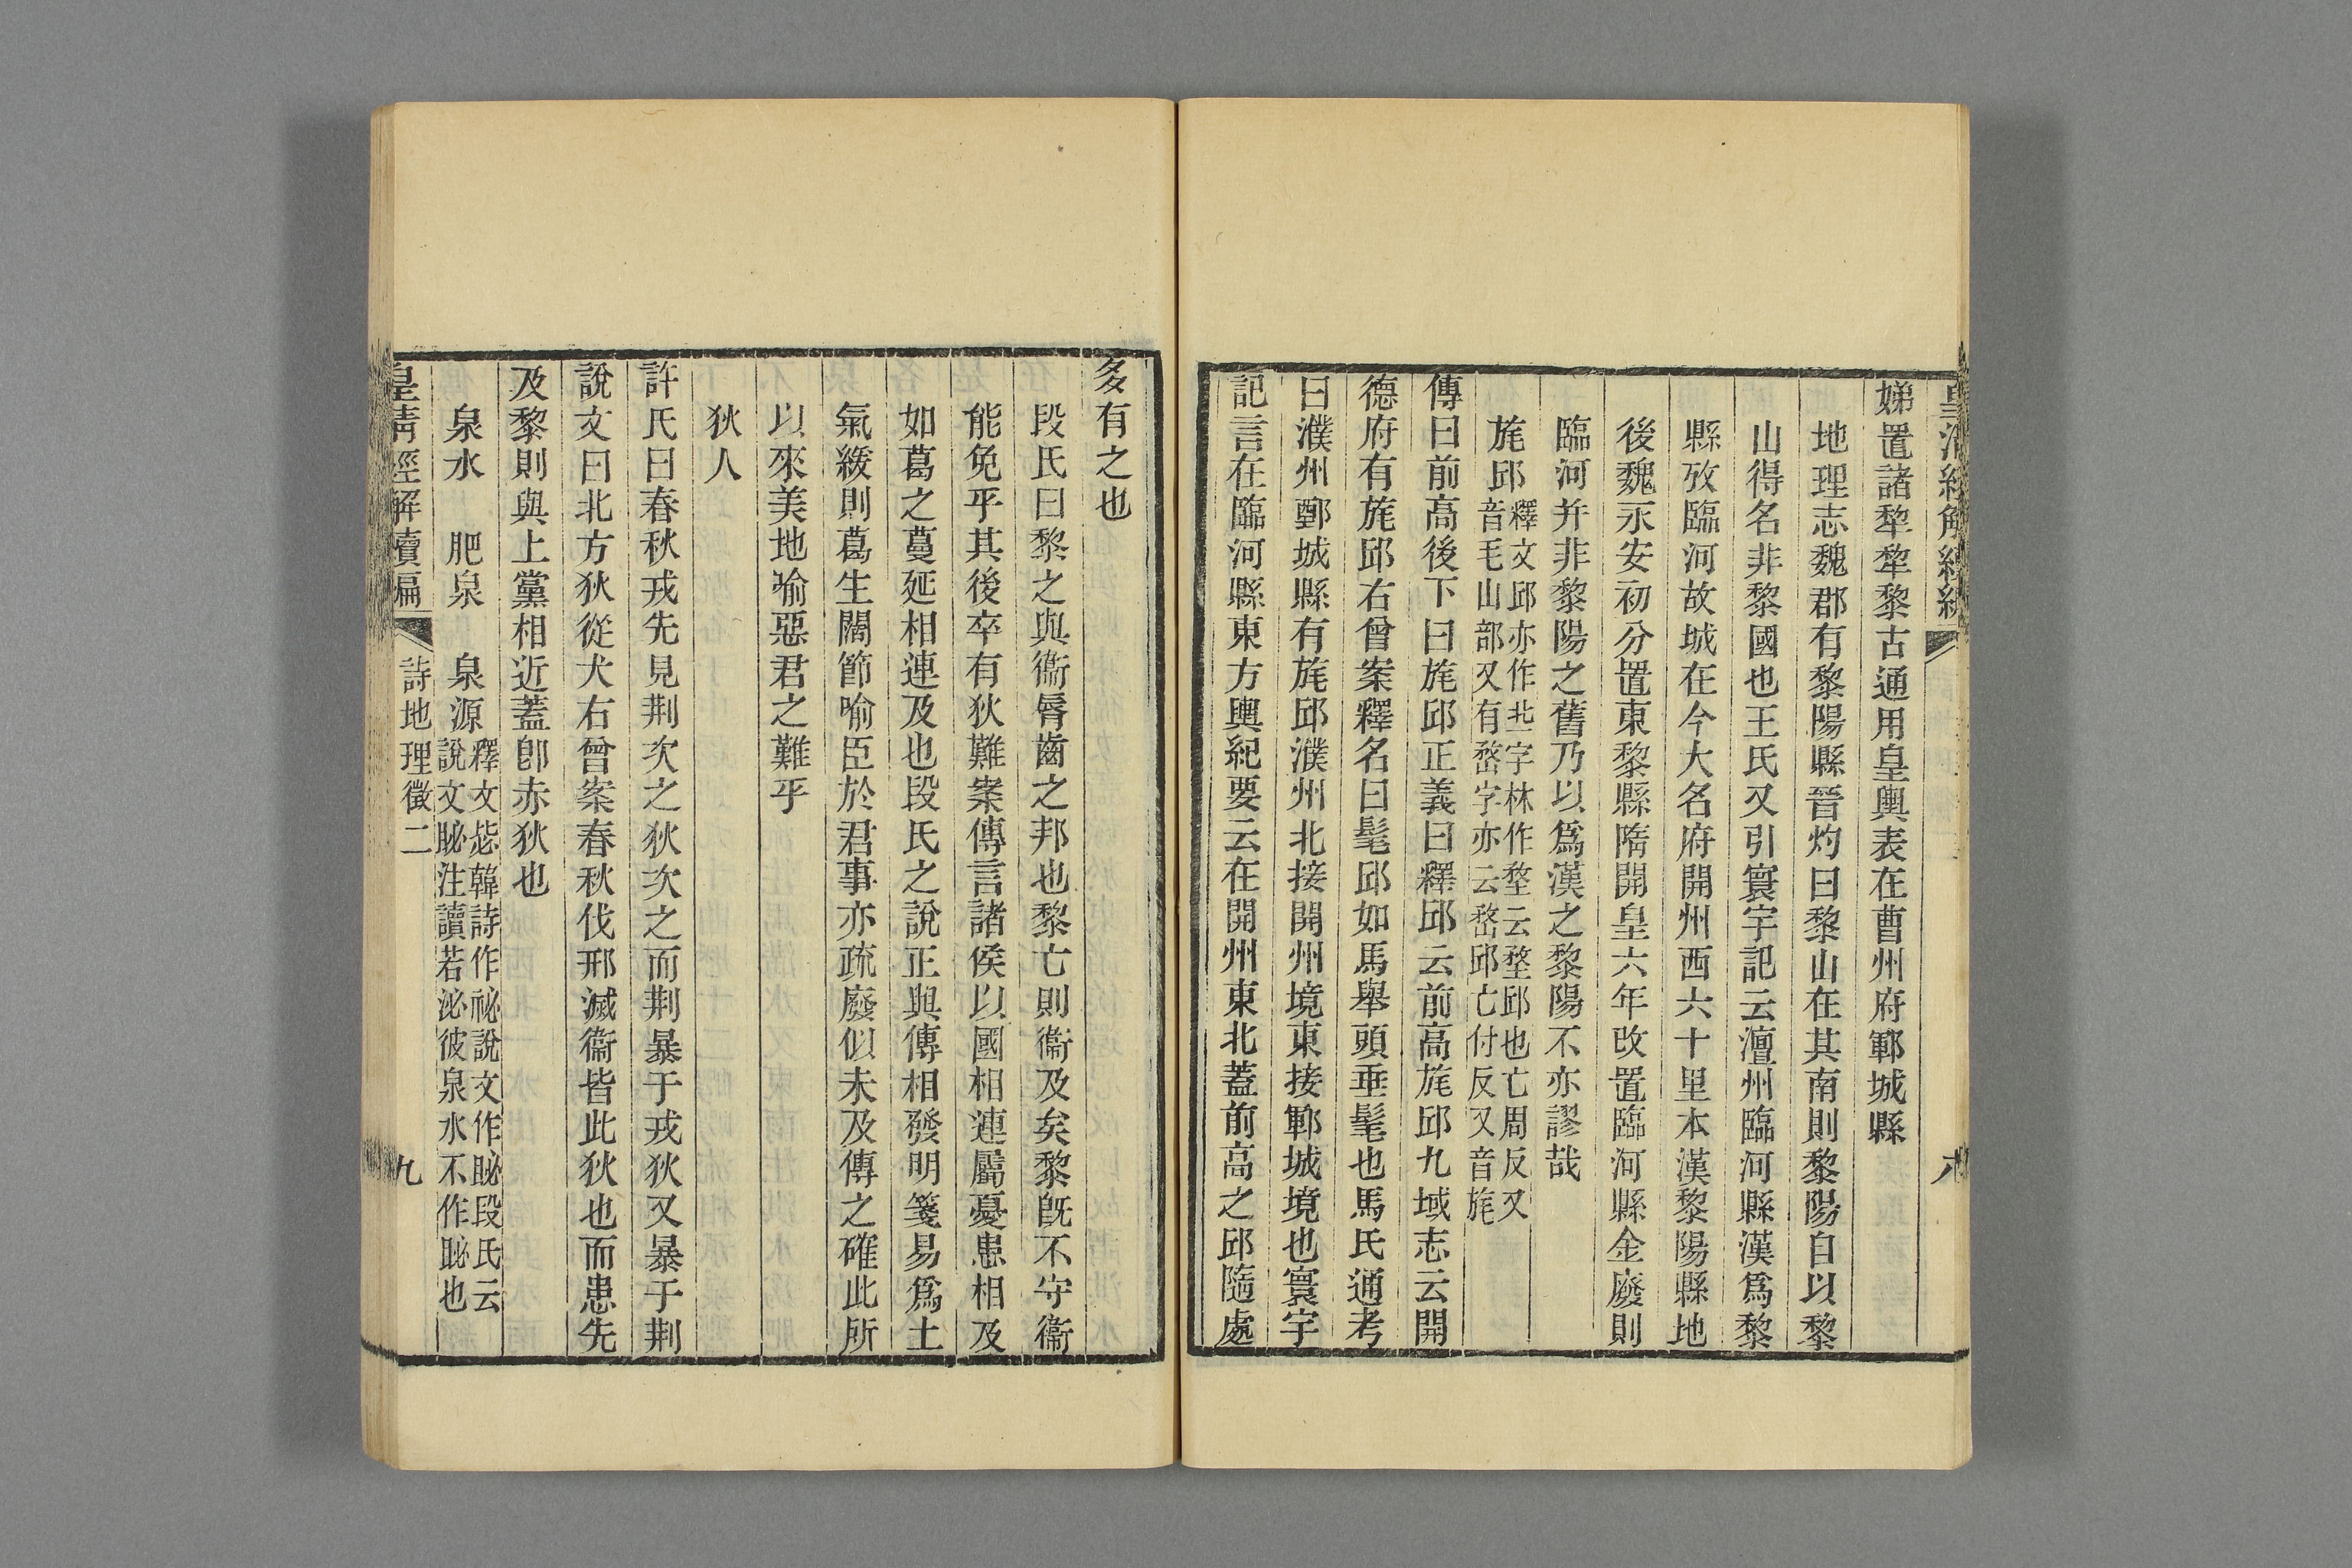 皇清經解續編
八
娣置諸犂犂黎古通用皇輿表在曹州府鄆城縣
地理志魏郡有黎陽縣晉灼曰黎山在其南則黎陽自以黎
山得名非黎國也王氏又引寰宇記云澶州臨河縣漢爲黎
縣攷臨河故城在今大名府開州西六十里本漢黎陽縣地
後魏永安初分置東黎縣隋開皇六年改置臨河縣金廢則
臨河幷非黎陽之舊乃以爲漢之黎陽不亦謬哉
旄邱釋文邱亦作丠字林作堥云堥邱也亡周反又
音毛山部又有嵍字亦云嵍邱亡付反又音旄
傳曰前高後下曰旄邱正義曰釋邱云前高旄邱九域志云開
德府有旄邱右曾案釋名曰髦邱如馬舉頭垂髦也馬氏通考
曰濮州鄄城縣有旄邱濮州北接開州境東接鄆城境也寰宇
記言在臨河縣東方輿紀要云在開州東北蓋前高之邱隨處
多有之也
段氏曰黎之與衞脣齒之邦也黎亡則衞及矣黎旣不守衞
能免乎其後卒有狄難案傳言諸侯以國相連屬憂患相及
如葛之蔓延相連及也段氏之說正與傳相發明箋易爲土
氣緩則葛生闊節喻臣於君事亦疏廢似未及傳之確此所
以來美地喻惡君之難乎
狄人
許氏曰春秋戎先見荆次之狄次之而荆暴于戎狄又暴于荆
說文曰北方狄從犬右曾案春秋伐邢滅衞皆此狄也而患先
及黎則與上黨相近蓋卽赤狄也
泉水　肥泉　泉源釋文毖韓詩作祕說文作䀣段氏云
說文䀣注讀若泌彼泉水不作䀣也
皇淸經解續編
詩地理徵二
九